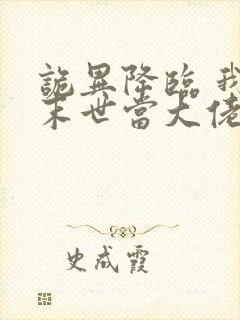 詭異降臨 我
末世當大佬
史成霞